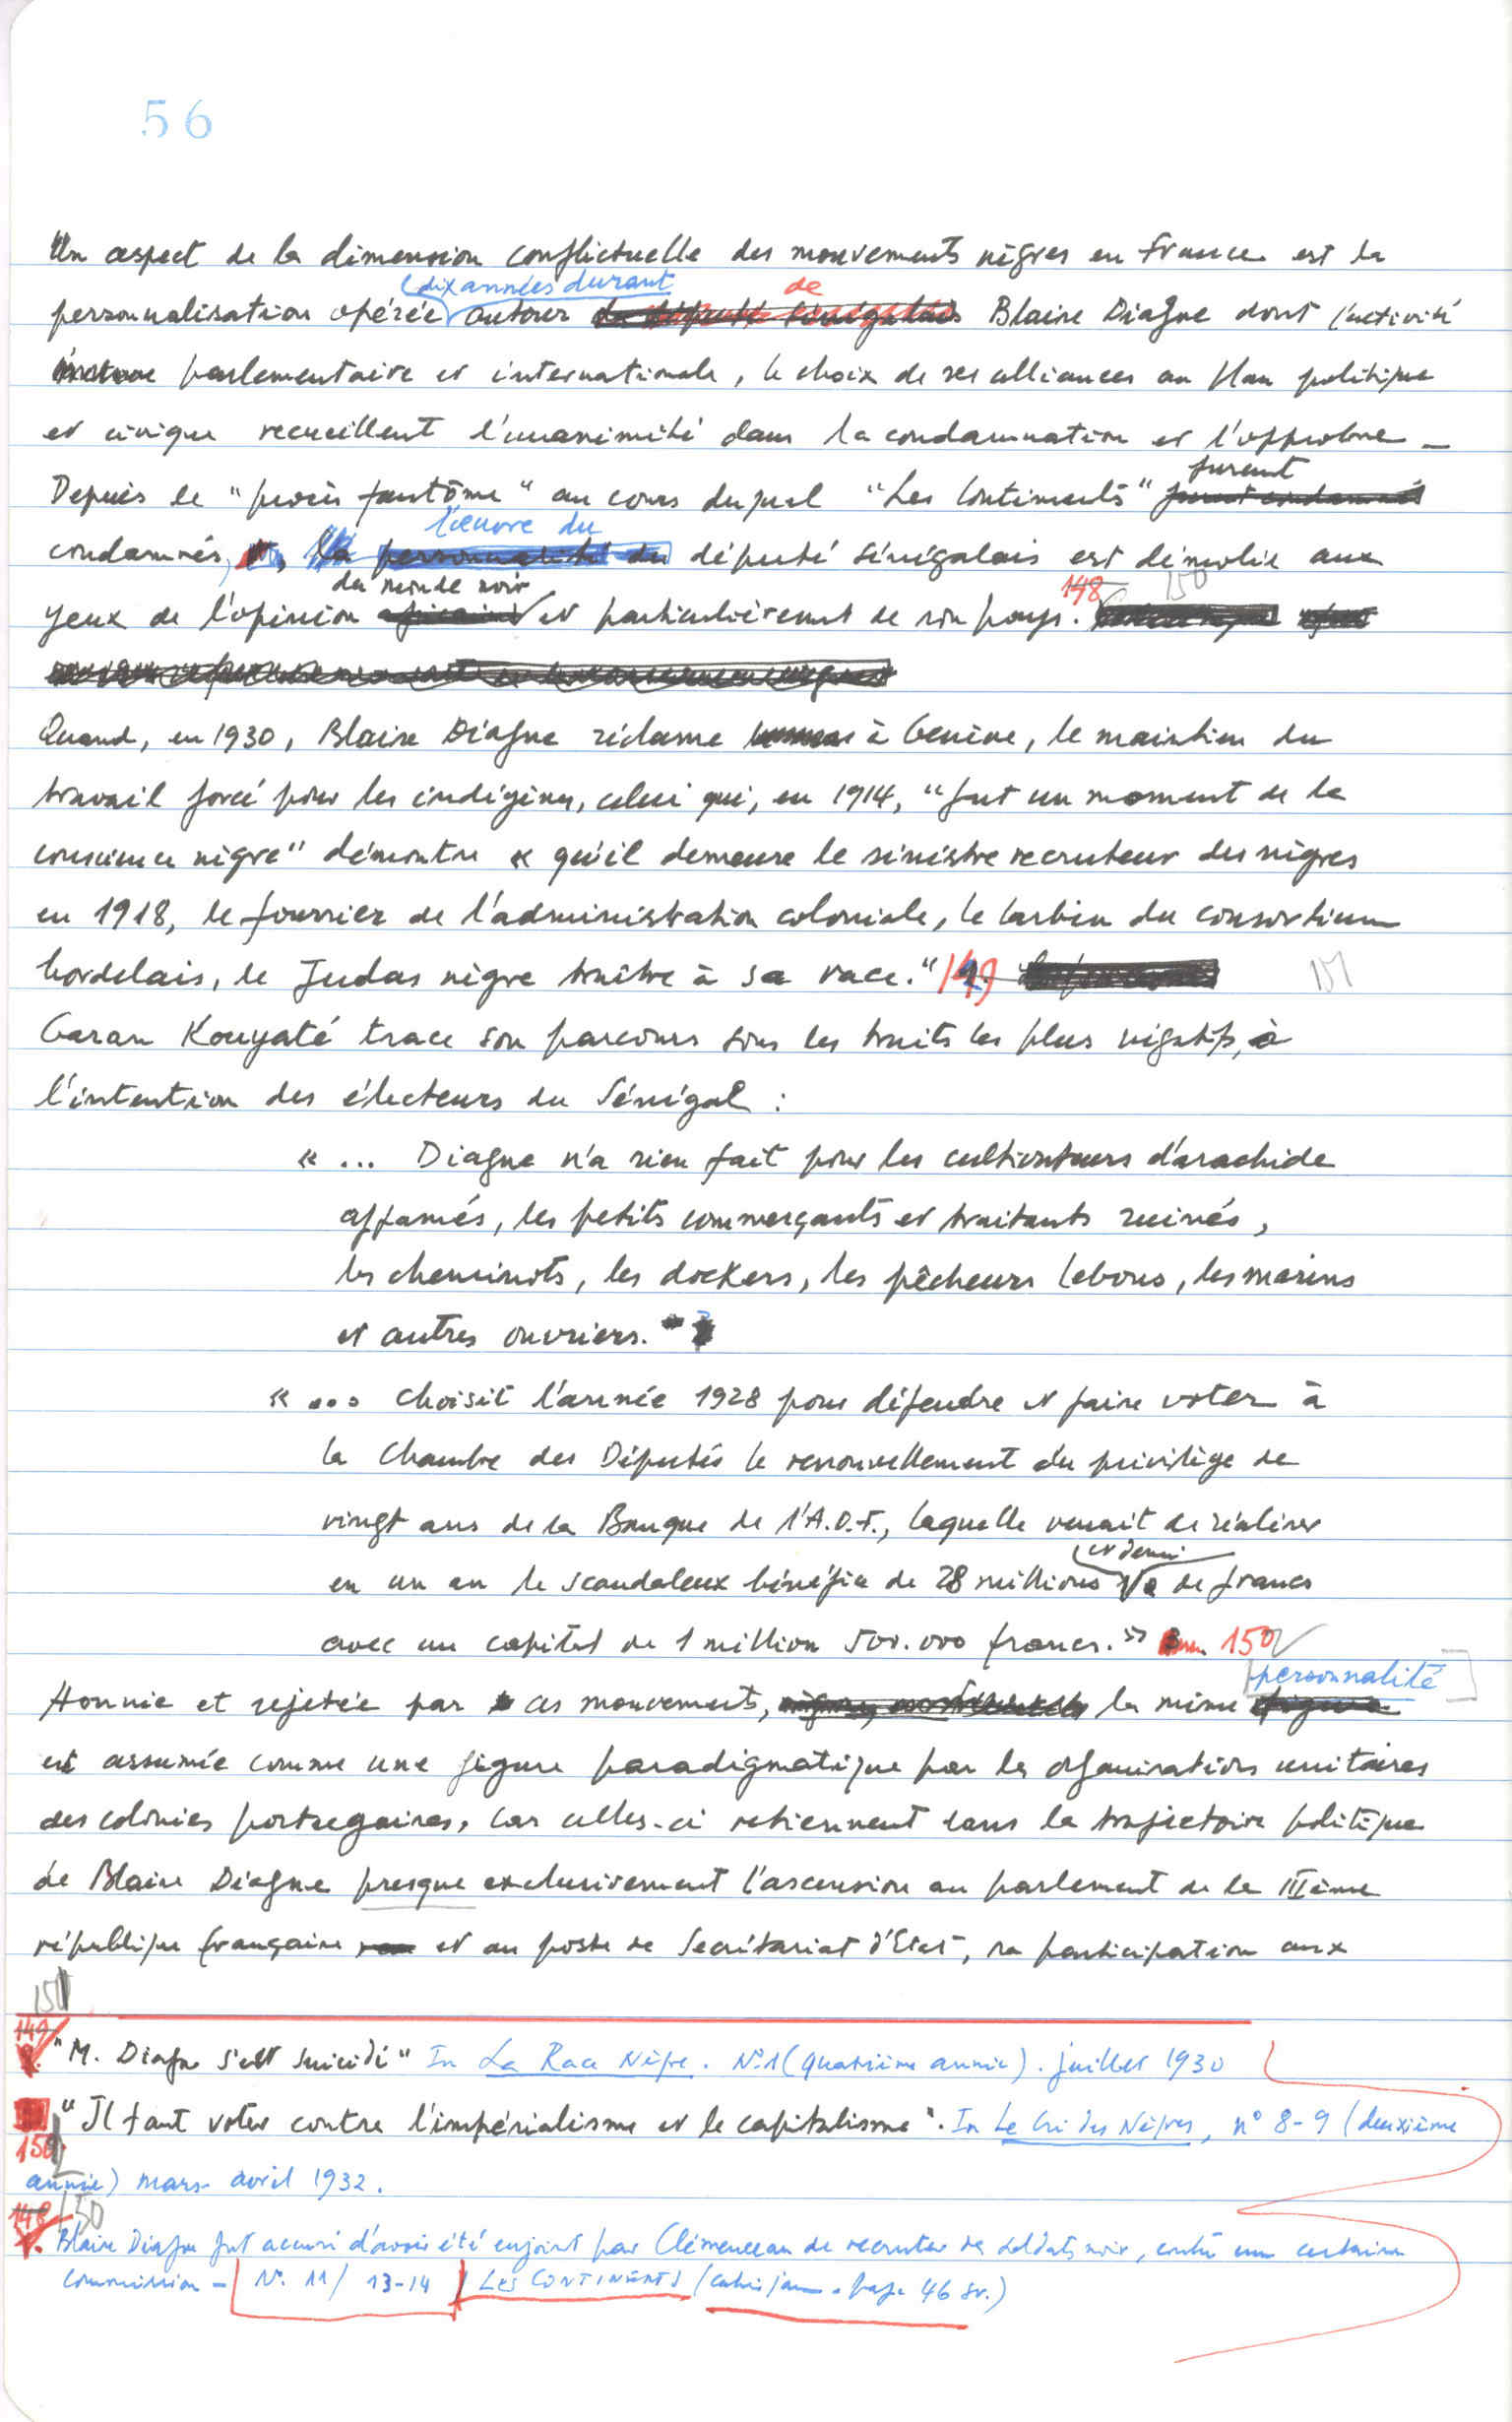 56
Un aspect de la dimension conflictuelle des mouvements nègres en France est la
(dix années durant
de
personnalisation opérée autour du député sénégalais Blaise Diagne dont l'activité
parlementaire et internationale, le choix de ses alliances au plan politique
et civique recueillent l'unanimité dans la condamnation et l'opprobre –
furent
Depuis le "procès fantôme" au cours duquel "Les Continents"
l'œuvre du
condamnés, la personnalité du député sénégalais est démolie aux
du monde noir
148 150
yeux de l'opinion africaine et particulièrement de son pays.
Quand, en 1930, Blaise Diagne réclame à Genève, le maintien du
travail forcé pour les indigènes, celui qui, en 1914, "fut un moment de la
conscience nègre" démontre « qu'il demeure le sinistre recruteur des nègres
en 1918, le fourrier de l'administration coloniale, le larbin du consortium
bordelais, le Judas nègre traître à sa race." 149 151
Garan Kouyaté trace son parcours sous les traits les plus négatifs, à
l'intention des électeurs du Sénégal :
« ... Diagne n'a rien fait pour les cultivateurs d'arachide
affamés, les petits commerçants et traitants ruinés,
les cheminots, les dockers, les pêcheurs lebous, les marins
et autres ouvriers."
« ... choisit l'année 1928 pour défendre et faire voter à
la Chambre des Députés le renouvellement du privilège de
vingt ans de la Banque de l'A.O.F., laquelle venait de réaliser
et demi
en un an le scandaleux bénéfice de 28 millions de francs
avec un capital de 1 million 500.000 francs." 150
personnalité
Honnie et rejetée par ces mouvements, la même figure
est assumée comme une figure paradigmatique par les organisations unitaires
des colonies portugaises, car celles-ci retiennent dans la trajectoire politique
de Blaise Diagne presque exclusivement l'ascension au parlement de la IIIème
république française et au poste de Secrétariat d'Etat, sa participation aux
151
149
"M. Diagne s'est suicidé" In La Race Nègre. N°1 (quatrième année). juillet 1930
"Il faut voter contre l'impérialisme et le capitalisme". In Le Cri des Nègres, n° 8-9 (deuxième
150
année) mars-avril 1932.
148 150
Blaise Diagne fut accusé d'avoir été enjoint par Clémenceau de recruter des soldats noirs, contre une certaine
commission – N°. 11/ 13-14 / LES CONTINENTS (cahier jaune. page 46 sv.)